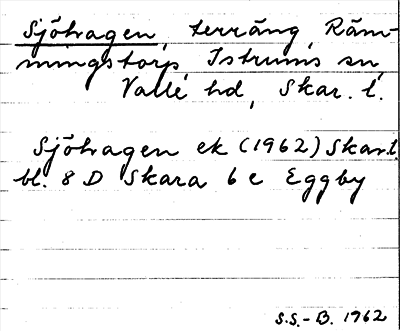 Sjöhagen, terräng, Räm-
mingstorp, Istrums sn,
Valle hd, Skar. l.
Sjöhagen ek (1962) Skar.l.
bl. 8 D Skara 6 e Eggby
S.S.-B. 1962